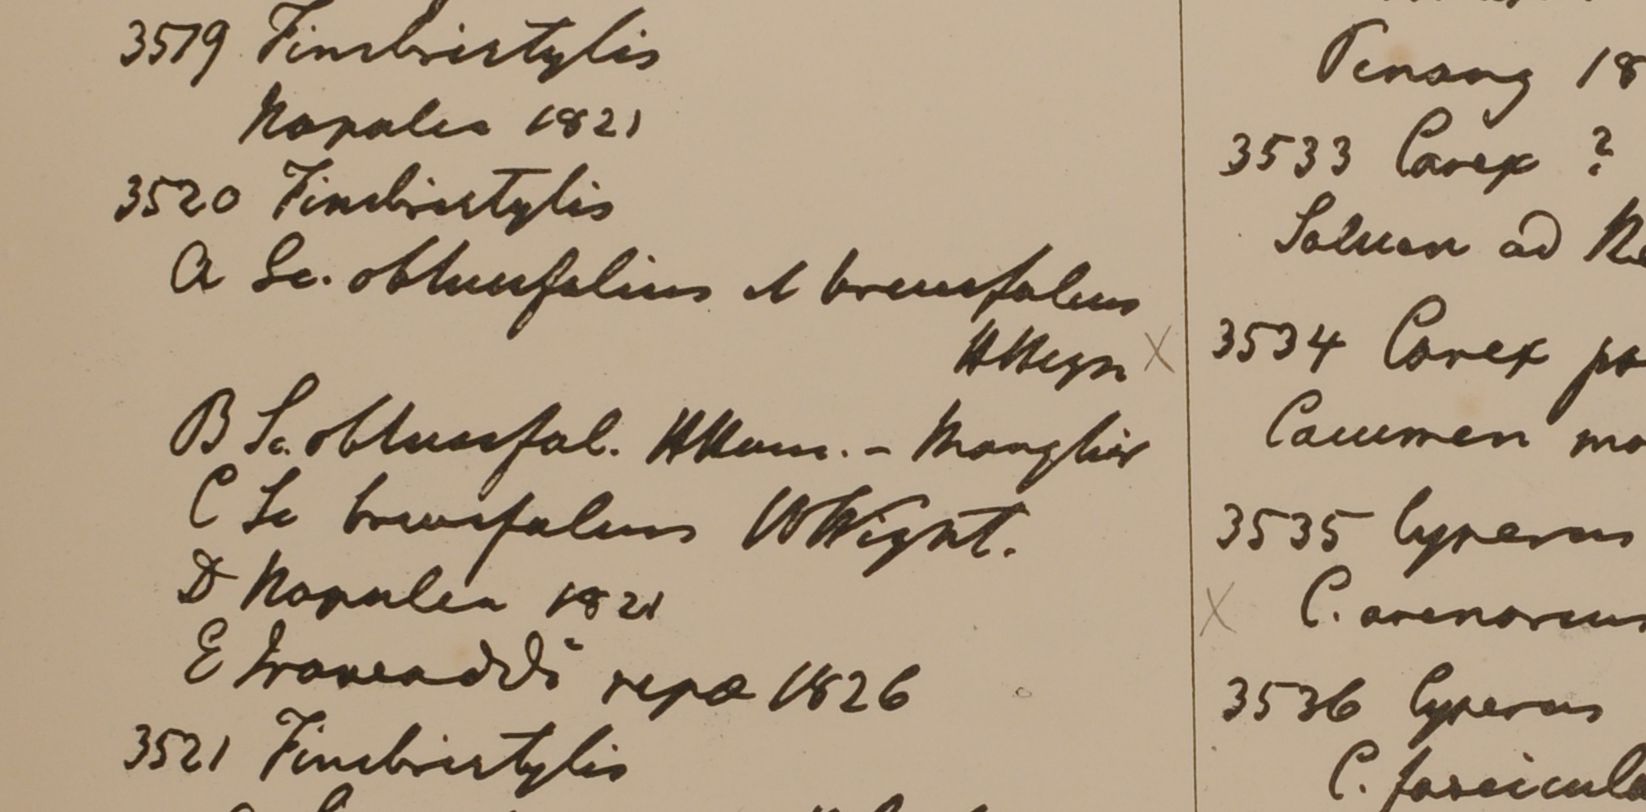 3519 Fimbristylis
Napalia 1821
3520 Fimbristylis
A Sc. obtusifolius et brevifolius
HHeyn
B Sc. obtusifol. HHam. - Monghir
C Sc brevifolius HWight.
D Napalia 1821
E Irawaddi ripa 1826
3521 Fimbristylis
Penang 18
3533 Carex ?
Saluen ad
3534 Carex
Cacumen mo
3535 Cyperus
C. arenarius
3536 Cyperus
C. fascicula